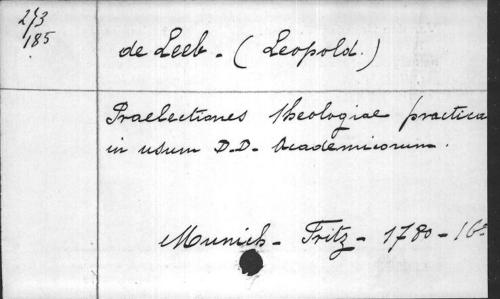 273
185
de Leeb - (Leopold.)
Praelectiones theologiae practica
in usum D.D. Academicorum.
Munich - Fritz - 1780 - 16º